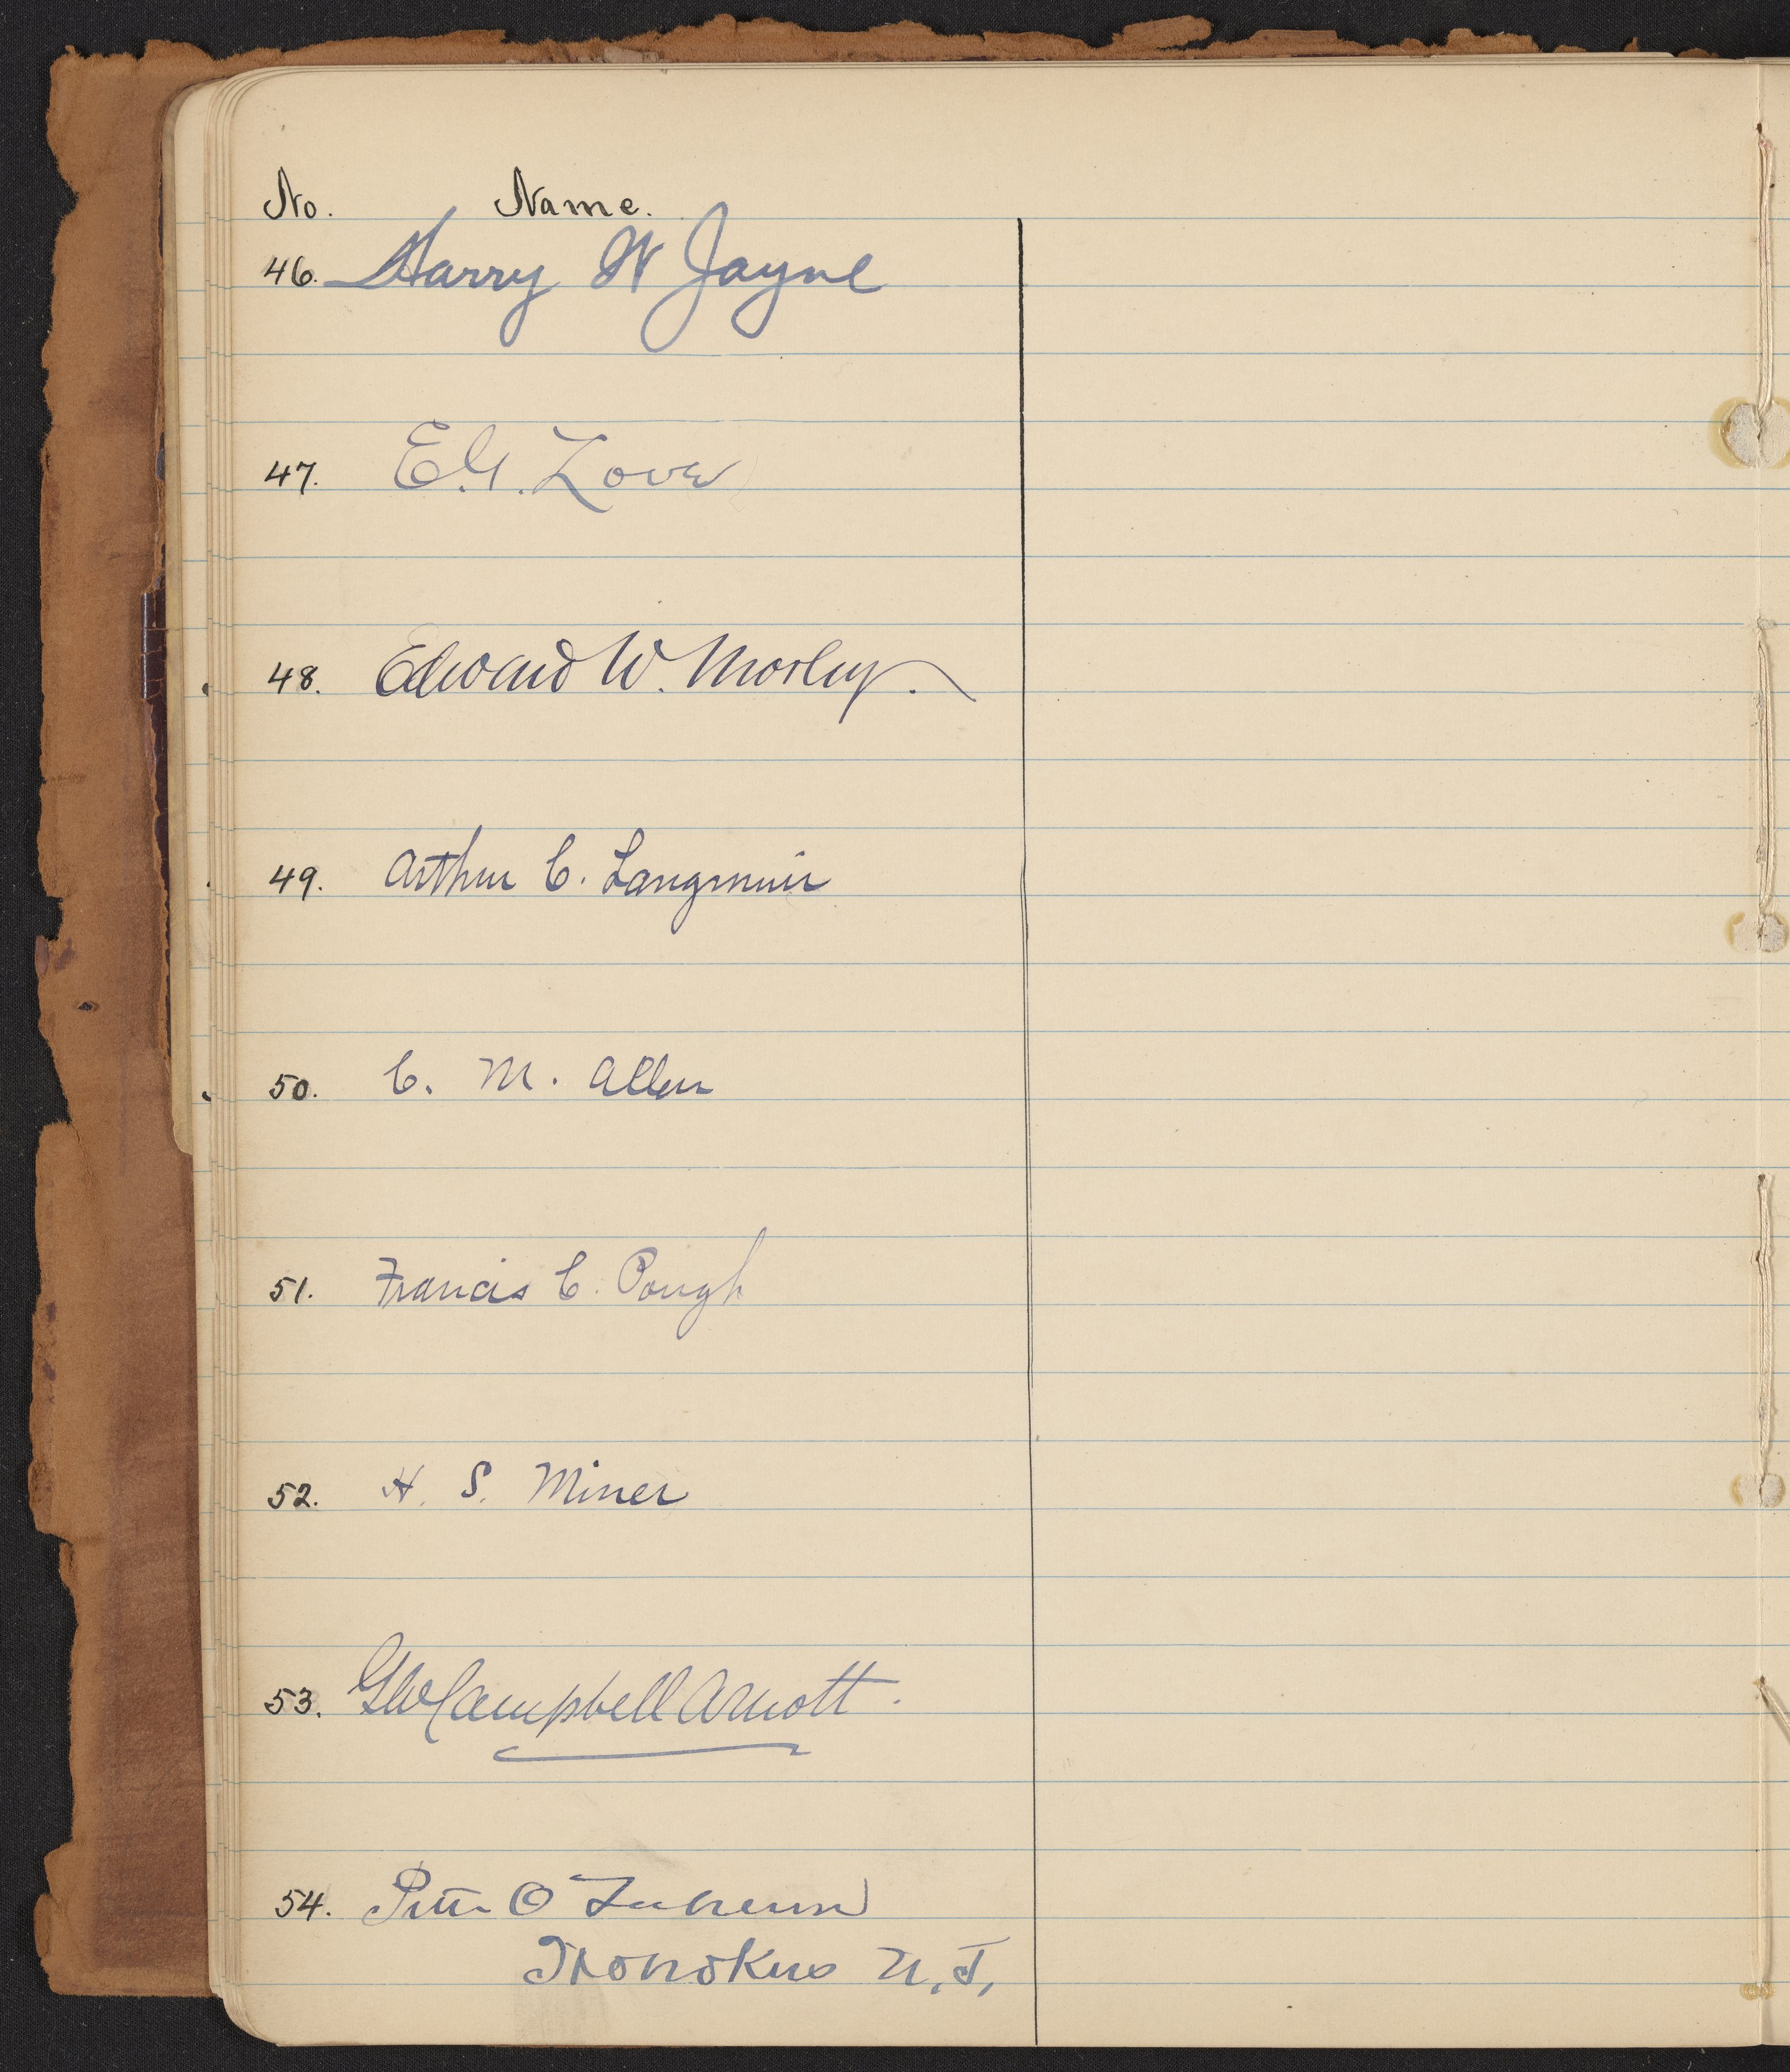 No. Name.
46. Harry W Jayne
47. E.G. Love
48. Edward W. Morley.
49. Arthur C. Langmuir
50. C. M. Allen
51. Francis C. Pough
52. H. S. Miner
53. GW Campbell Arnott.
54. O
N.J.